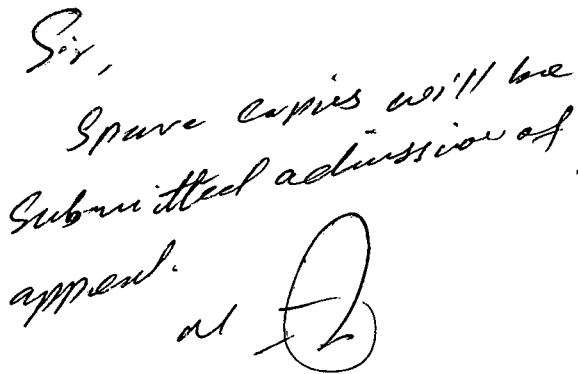 Sir,
Spare copies will be
Submitted admission of
appeal.